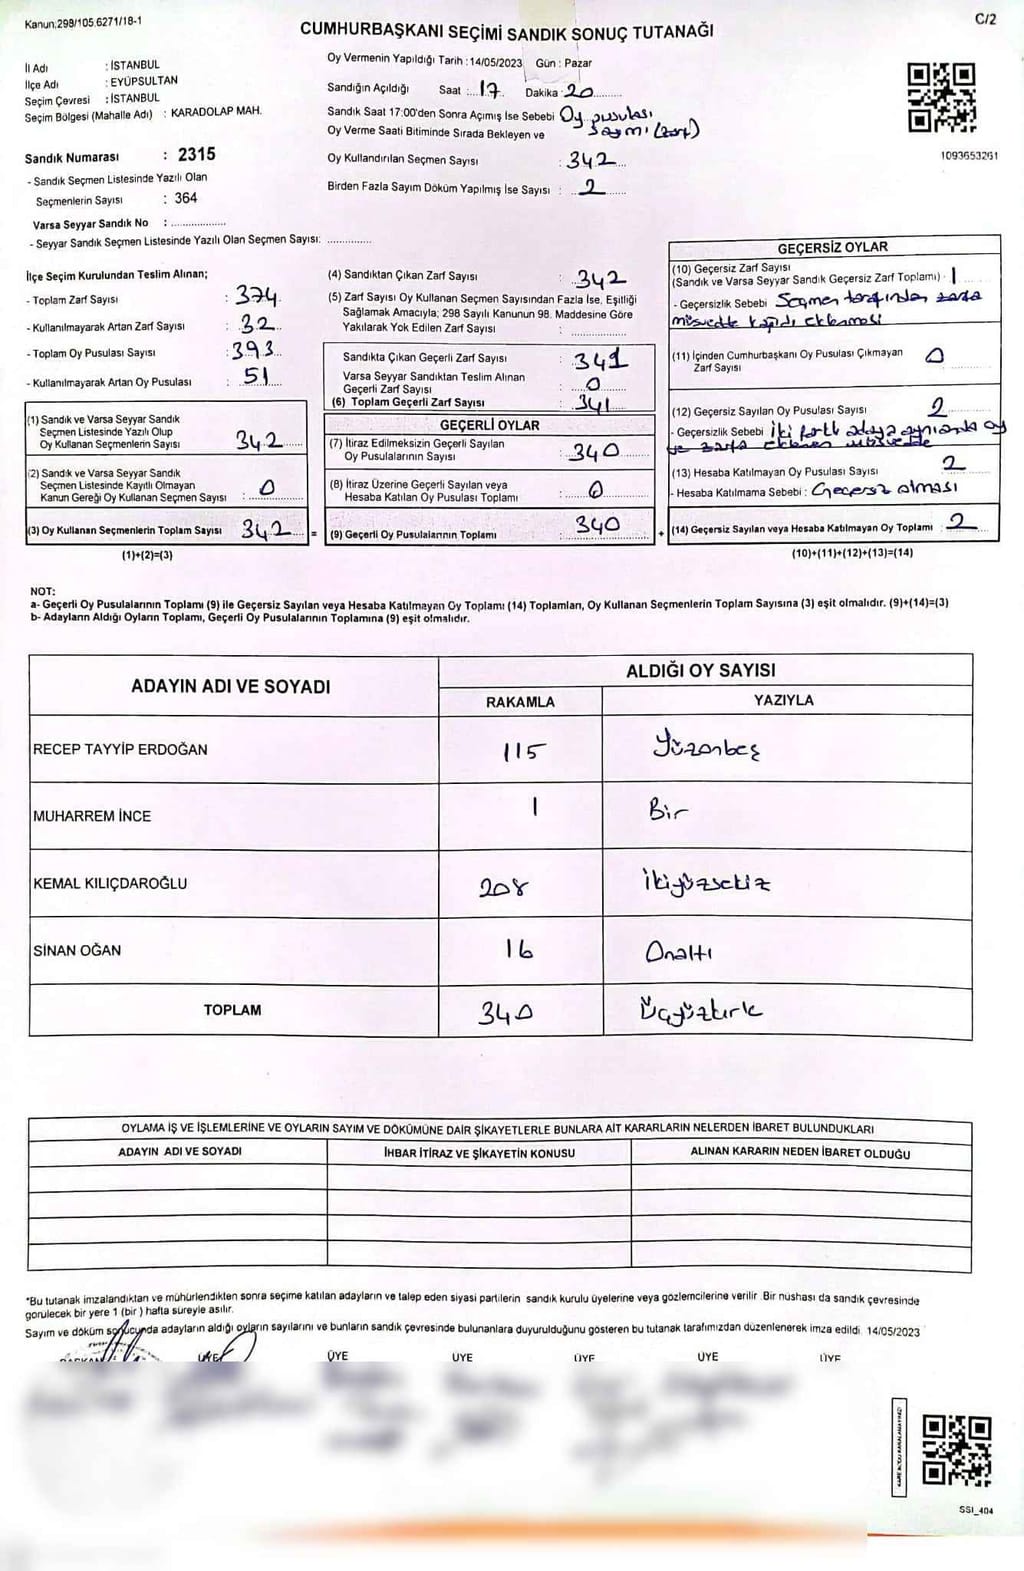 Kanun:298/105.6271/18-1
C/2
CUMHURBAŞKANI SEÇİMİ SANDIK SONUÇ TUTANAĞI
İl Adı : İSTANBUL
İlçe Adı : EYÜPSULTAN
Seçim Çevresi : İSTANBUL
Seçim Bölgesi (Mahalle Adı) : KARADOLAP MAH.
Sandık Numarası : 2315
- Sandık Seçmen Listesinde Yazılı Olan
Seçmenlerin Sayısı : 364
Varsa Seyyar Sandık No :
- Seyyar Sandık Seçmen Listesinde Yazılı Olan Seçmen Sayısı:
Oy Vermenin Yapıldığı Tarih : 14/05/2023 Gün : Pazar
Sandığın Açıldığı Saat : 17 Dakika : 20
Sandık Saat 17:00'den Sonra Açımış İse Sebebi Oy pusulası
Oy Verme Saati Bitiminde Sırada Bekleyen ve sayımı (zarf)
Oy Kullandırılan Seçmen Sayısı : 342
Birden Fazla Sayım Döküm Yapılmış İse Sayısı : 2
1093653261
İlçe Seçim Kurulundan Teslim Alınan;
- Toplam Zarf Sayısı : 374
- Kullanılmayarak Artan Zarf Sayısı : 32
- Toplam Oy Pusulası Sayısı : 393
- Kullanılmayarak Artan Oy Pusulası : 51
(1) Sandık ve Varsa Seyyar Sandık
Seçmen Listesinde Yazılı Olup
Oy Kullanan Seçmenlerin Sayısı 342
(2) Sandık ve Varsa Seyyar Sandık
Seçmen Listesinde Kayıtlı Olmayan
Kanun Gereği Oy Kullanan Seçmen Sayısı : 0
(3) Oy Kullanan Seçmenlerin Toplam Sayısı 342 =
(1)+(2)=(3)
(4) Sandıktan Çıkan Zarf Sayısı : 342
(5) Zarf Sayısı Oy Kullanan Seçmen Sayısından Fazla İse, Eşitliği
Sağlamak Amacıyla; 298 Sayılı Kanunun 98. Maddesine Göre
Yakılarak Yok Edilen Zarf Sayısı :
Sandıkta Çıkan Geçerli Zarf Sayısı : 341
Varsa Seyyar Sandıktan Teslim Alınan
Geçerli Zarf Sayısı : 0
(6) Toplam Geçerli Zarf Sayısı : 341
GEÇERLİ OYLAR
(7) İtiraz Edilmeksizin Geçerli Sayılan
Oy Pusulalarının Sayısı : 340
(8) İtiraz Üzerine Geçerli Sayılan veya
Hesaba Katılan Oy Pusulası Toplamı : 0
(9) Geçerli Oy Pusulalarının Toplamı : 340 +
GEÇERSİZ OYLAR
(10) Geçersiz Zarf Sayısı
(Sandık ve Varsa Seyyar Sandık Geçersiz Zarf Toplamı) · 1
- Geçersizlik Sebebi Seçmen tarafından zarfa
müsvedde kağıdı eklenmesi
(11) İçinden Cumhurbaşkanı Oy Pusulası Çıkmayan
Zarf Sayısı 0
(12) Geçersiz Sayılan Oy Pusulası Sayısı 2
- Geçersizlik Sebebi İki farklı adaya aynı anda oy
ve zarfa eklenen müsvedde
(13) Hesaba Katılmayan Oy Pusulası Sayısı 2
- Hesaba Katılmama Sebebi : Geçersiz olması
(14) Geçersiz Sayılan veya Hesaba Katılmayan Oy Toplamı : 2
(10)+(11)+(12)+(13)=(14)
NOT:
a- Geçerli Oy Pusulalarının Toplamı (9) ile Geçersiz Sayılan veya Hesaba Katılmayan Oy Toplamı (14) Toplamları, Oy Kullanan Seçmenlerin Toplam Sayısına (3) eşit olmalıdır. (9)+(14)=(3)
b- Adayların Aldığı Oyların Toplamı, Geçerli Oy Pusulalarının Toplamına (9) eşit olmalıdır.
ADAYIN ADI VE SOYADI
ALDIĞI OY SAYISI
RAKAMLA YAZIYLA
RECEP TAYYİP ERDOĞAN 115 Yüzonbeş
MUHARREM İNCE 1 Bir
KEMAL KILIÇDAROĞLU 208 İkiyüzsekiz
SİNAN OĞAN 16 Onaltı
TOPLAM 340 Üçyüzkırk
OYLAMA İŞ VE İŞLEMLERİNE VE OYLARIN SAYIM VE DÖKÜMÜNE DAİR ŞİKAYETLERLE BUNLARA AİT KARARLARIN NELERDEN İBARET BULUNDUKLARI
ADAYIN ADI VE SOYADI İHBAR İTİRAZ VE ŞİKAYETİN KONUSU ALINAN KARARIN NEDEN İBARET OLDUĞU
*Bu tutanak imzalandıktan ve mühürlendikten sonra seçime katılan adayların ve talep eden siyasi partilerin sandık kurulu üyelerine veya gözlemcilerine verilir Bir nüshası da sandık çevresinde
görülecek bir yere 1 (bir ) hafta süreyle asılır.
Sayım ve döküm sonucunda adayların aldığı oyların sayılarını ve bunların sandık çevresinde bulunanlara duyurulduğunu gösteren bu tutanak tarafımızdan düzenlenerek imza edildi. 14/05/2023
BAŞKAN ÜYE ÜYE ÜYE ÜYE ÜYE ÜYE
SSI_404